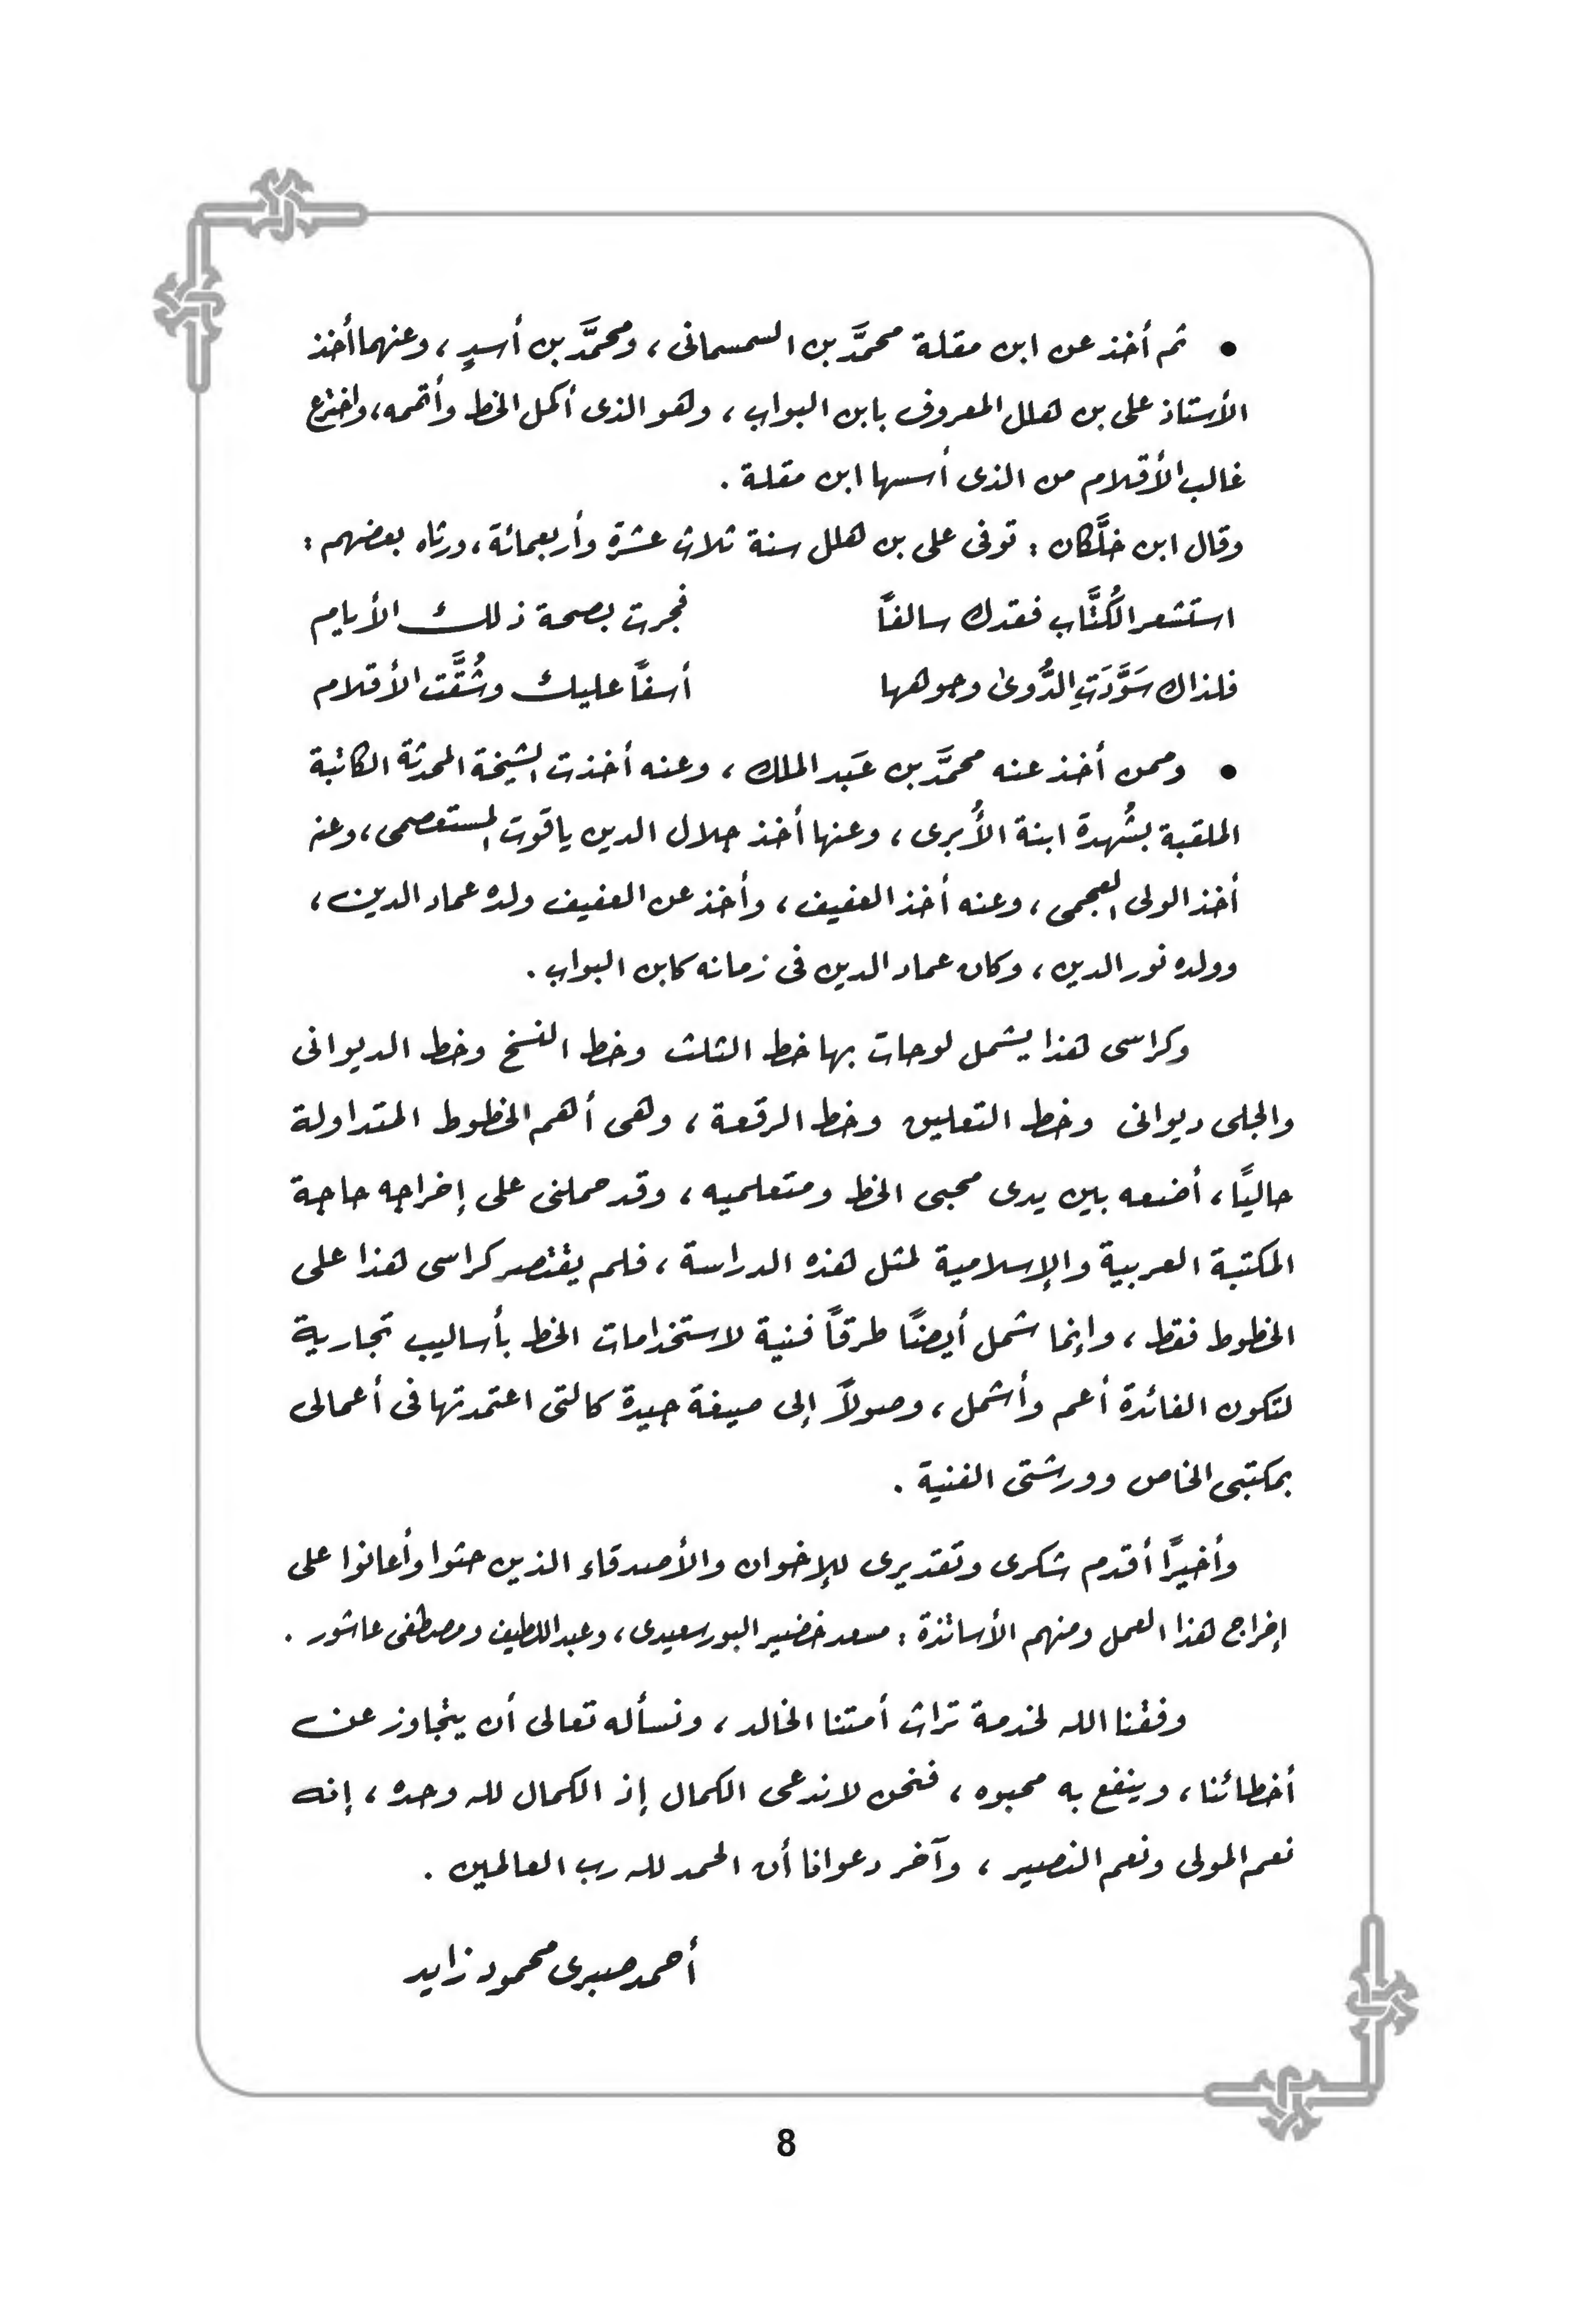 • ثم أخذ عن ابن مقلة محمَّد بن السمسمانى ، ومحمَّد بن أسدٍ ، وعنهما أخذ
الأستاذ على بن هلال المعروف بابن البواب ، وهو الذى أكمل الخط وأتممه ، واخترع
غالب الأقلام من الذى أسسها ابن مقلة .
وقال ابن خلَّكان : توفى على بن هلال سنة ثلاث عشرة وأربعمائة ، ورثاه بعضهم :
استشعر الكُتَّاب فقدك سالفاً فجرت بصحة ذلك الأيام
فلذاك سَوَّدَتِ الدُّوىٰ وجوهها أسفاً عليك وشُقَّت الأقلام
• وممن أخذ عنه محمَّد بن عَبد الملك ، وعنه أخذت الشيخة المحدثة الكاتبة
الملقبة بشُهدة ابنة الأُبرى ، وعنها أخذ جلال الدين ياقوت المستعصمى ، وعنه
أخذ الولى العجمى ، وعنه أخذ العفيف ، وأخذ عن العفيف ولده عماد الدين ،
وولده نور الدين ، وكان عماد الدين فى زمانه كابن البواب .
وكراسى هذا يشمل لوحات بها خط الثلث وخط النسخ وخط الديوانى
والجلى ديوانى وخط التعليق وخط الرقعة ، وهى أهم الخطوط المتداولة
حالياً ، أضعه بين يدى محبى الخط ومتعلميه ، وقد حملنى على إخراجه حاجة
المكتبة العربية والإسلامية لمثل هذه الدراسة ، فلم يقتصر كراسى هذا على
الخطوط فقط ، وإنما شمل أيضاً طرقاً فنية لاستخدامات الخط بأساليب تجارية
لتكون الفائدة أعم وأشمل ، وصولاً إلى صيغة جيدة كالتى اعتمدتها فى أعمالى
بمكتبى الخاص وورشتى الفنية .
وأخيراً أقدم شكرى وتقديرى للإخوان والأصدقاء الذين حثوا وأعانوا على
إخراج هذا العمل ومنهم الأساتذة : مسعد خضير البورسعيدى ، وعبد اللطيف ومصطفى عاشور .
وفقنا الله لخدمة تراث أمتنا الخالد ، ونسأله تعالى أن يتجاوز عن
أخطائنا ، وينفع به محبوه ، فنحن لا ندعى الكمال إذ الكمال لله وحده ، إنه
نعم المولى ونعم النصير ، وآخر دعوانا أن الحمد لله رب العالمين .
أحمد صبرى محمود زايد
8